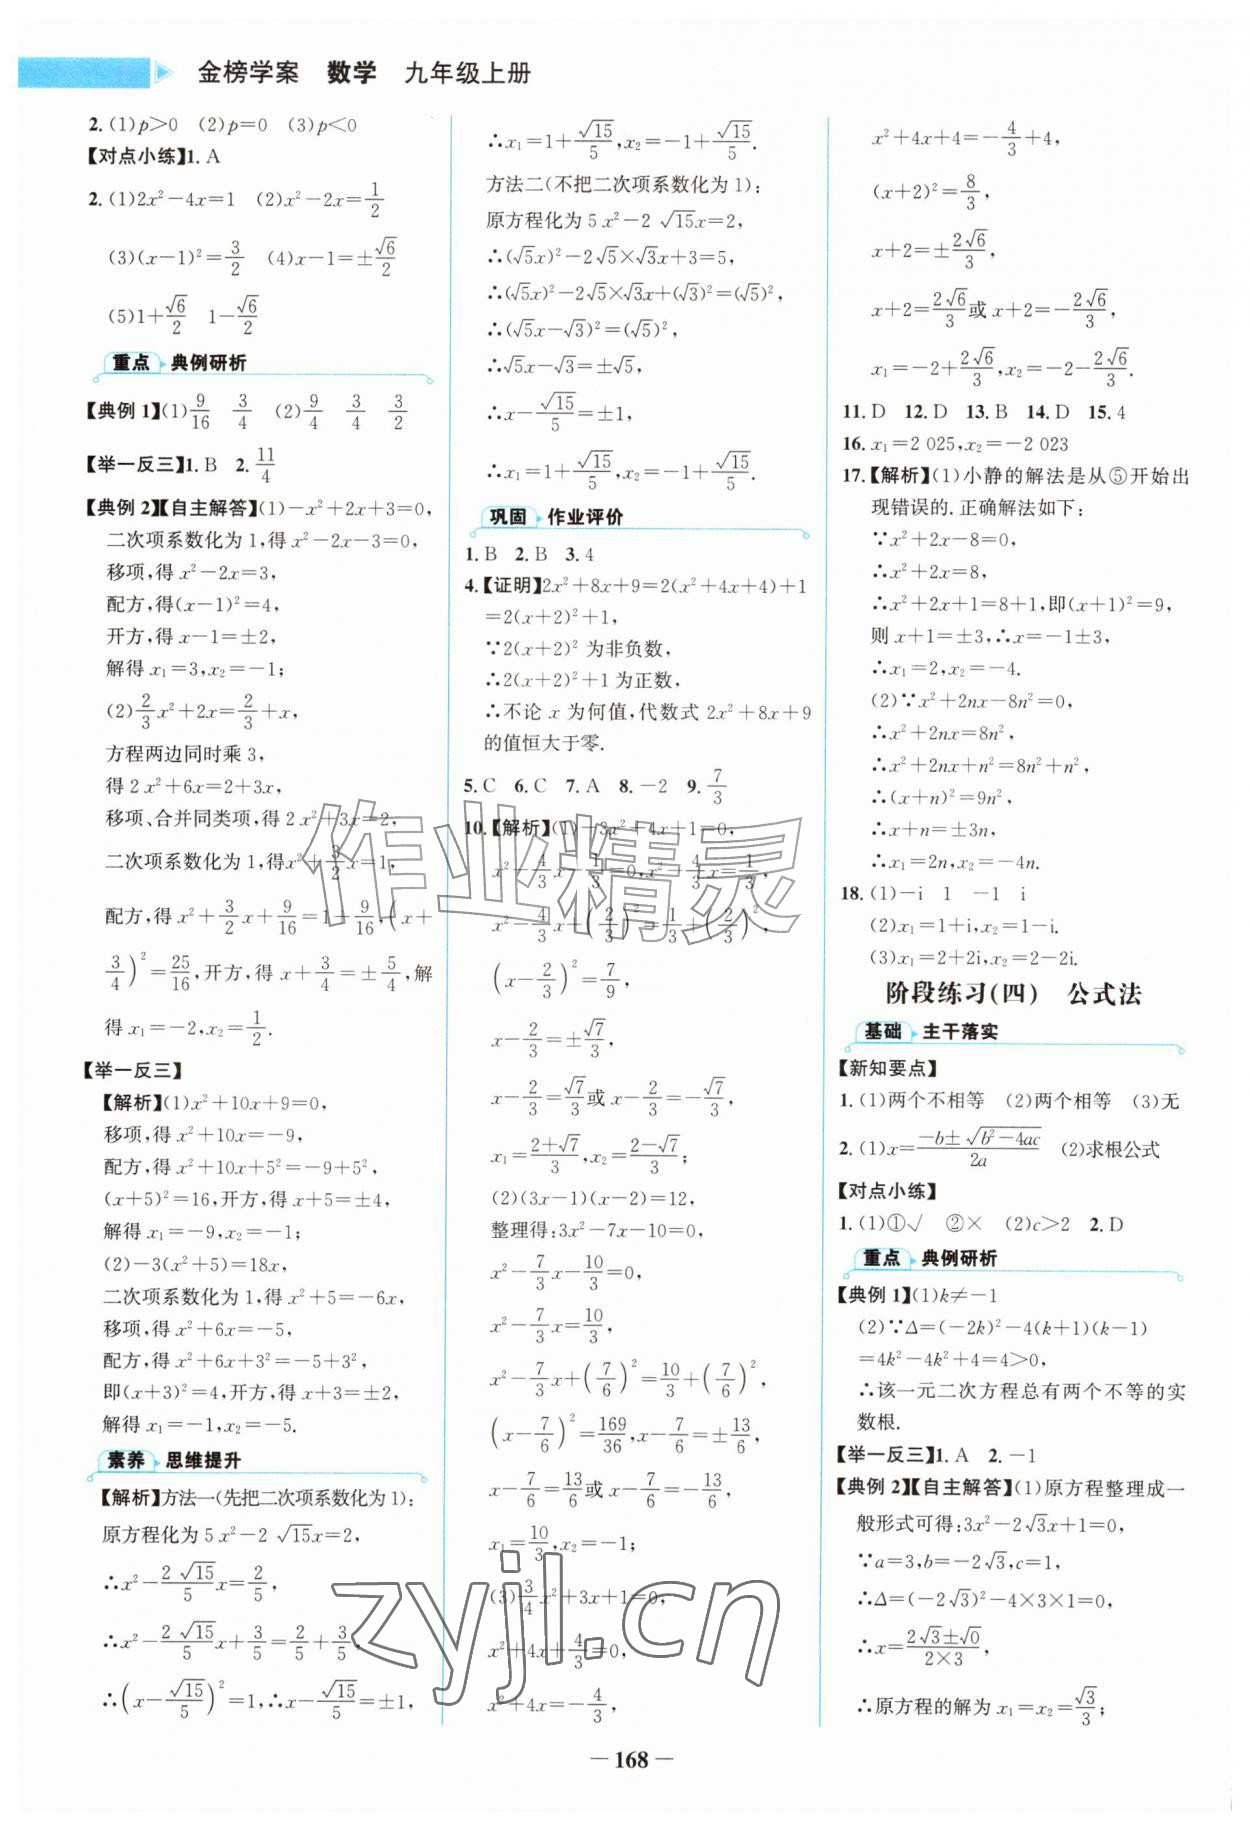 金榜学案 数学 九年级上册
2.(1)p>0 (2)p=0 (3)p<0
【对点小练】1.A
2.(1)2x²-4x=1 (2)x²-2x=1/2
(3)(x-1)²=3/2 (4)x-1=±√6/2
(5)1+√6/2 1-√6/2
重点 典例研析
【典例1】(1)9/16 3/4 (2)9/4 3/4 3/2
【举一反三】1.B 2.11/4
【典例2】【自主解答】(1)-x²+2x+3=0,
二次项系数化为1,得x²-2x-3=0,
移项,得x²-2x=3,
配方,得(x-1)²=4,
开方,得x-1=±2,
解得x₁=3,x₂=-1;
(2)2/3x²+2x=2/3+x,
方程两边同时乘3,
得2x²+6x=2+3x,
移项、合并同类项,得2x²+3x=2,
二次项系数化为1,得x²+3/2x=1,
配方,得x²+3/2x+9/16=1+9/16,(x+
3/4)²=25/16,开方,得x+3/4=±5/4,解
得x₁=-2,x₂=1/2.
【举一反三】
【解析】(1)x²+10x+9=0,
移项,得x²+10x=-9,
配方,得x²+10x+5²=-9+5²,
(x+5)²=16,开方,得x+5=±4,
解得x₁=-9,x₂=-1;
(2)-3(x²+5)=18x,
二次项系数化为1,得x²+5=-6x,
移项,得x²+6x=-5,
配方,得x²+6x+3²=-5+3²,
即(x+3)²=4,开方,得x+3=±2,
解得x₁=-1,x₂=-5.
素养 思维提升
【解析】方法一(先把二次项系数化为1):
原方程化为5x²-2√15x=2,
∴x²-2√15/5x=2/5,
∴x²-2√15/5x+3/5=2/5+3/5,
∴(x-√15/5)²=1,∴x-√15/5=±1,
∴x₁=1+√15/5,x₂=-1+√15/5.
方法二(不把二次项系数化为1):
原方程化为5x²-2√15x=2,
∴(√5x)²-2√5×√3x+3=5,
∴(√5x)²-2√5×√3x+(√3)²=(√5)²,
∴(√5x-√3)²=(√5)²,
∴√5x-√3=±√5,
∴x-√15/5=±1,
∴x₁=1+√15/5,x₂=-1+√15/5.
巩固 作业评价
1.B 2.B 3.4
4.【证明】2x²+8x+9=2(x²+4x+4)+1
=2(x+2)²+1,
∵2(x+2)²为非负数,
∴2(x+2)²+1为正数,
∴不论x为何值,代数式2x²+8x+9
的值恒大于零.
5.C 6.C 7.A 8.-2 9.7/3
10.【解析】(1)-3x²+4x+1=0,
x²-4/3x-1/3=0,x²-4/3x=1/3,
x²-4/3x+(2/3)²=1/3+(2/3)²,
(x-2/3)²=7/9,
x-2/3=±√7/3,
x-2/3=√7/3或x-2/3=-√7/3,
x₁=2+√7/3,x₂=2-√7/3;
(2)(3x-1)(x-2)=12,
整理得:3x²-7x-10=0,
x²-7/3x-10/3=0,
x²-7/3x=10/3,
x²-7/3x+(7/6)²=10/3+(7/6)²,
(x-7/6)²=169/36,x-7/6=±13/6,
x-7/6=13/6或x-7/6=-13/6,
x₁=10/3,x₂=-1;
(3)3/4x²+3x+1=0,
x²+4x+4/3=0,
x²+4x=-4/3,
x²+4x+4=-4/3+4,
(x+2)²=8/3,
x+2=±2√6/3,
x+2=2√6/3或x+2=-2√6/3,
x₁=-2+2√6/3,x₂=-2-2√6/3.
11.D 12.D 13.B 14.D 15.4
16.x₁=2 025,x₂=-2 023
17.【解析】(1)小静的解法是从⑤开始出
现错误的.正确解法如下:
∵x²+2x-8=0,
∴x²+2x=8,
∴x²+2x+1=8+1,即(x+1)²=9,
则x+1=±3,∴x=-1±3,
∴x₁=2,x₂=-4.
(2)∵x²+2nx-8n²=0,
∴x²+2nx=8n²,
∴x²+2nx+n²=8n²+n²,
∴(x+n)²=9n²,
∴x+n=±3n,
∴x₁=2n,x₂=-4n.
18.(1)-i 1 -1 i
(2)x₁=1+i,x₂=1-i.
(3)x₁=2+2i,x₂=2-2i.
阶段练习(四) 公式法
基础 主干落实
【新知要点】
1.(1)两个不相等 (2)两个相等 (3)无
2.(1)x=-b±√b²-4ac/2a (2)求根公式
【对点小练】
1.(1)①√ ②× (2)c>2 2.D
重点 典例研析
【典例1】(1)k≠-1
(2)∵Δ=(-2k)²-4(k+1)(k-1)
=4k²-4k²+4=4>0,
∴该一元二次方程总有两个不等的实
数根.
【举一反三】1.A 2.-1
【典例2】【自主解答】(1)原方程整理成一
般形式可得:3x²-2√3x+1=0,
∵a=3,b=-2√3,c=1,
∴Δ=(-2√3)²-4×3×1=0,
∴x=2√3±√0/2×3,
∴原方程的解为x₁=x₂=√3/3;
作业精灵
zyjl.cn
— 168 —